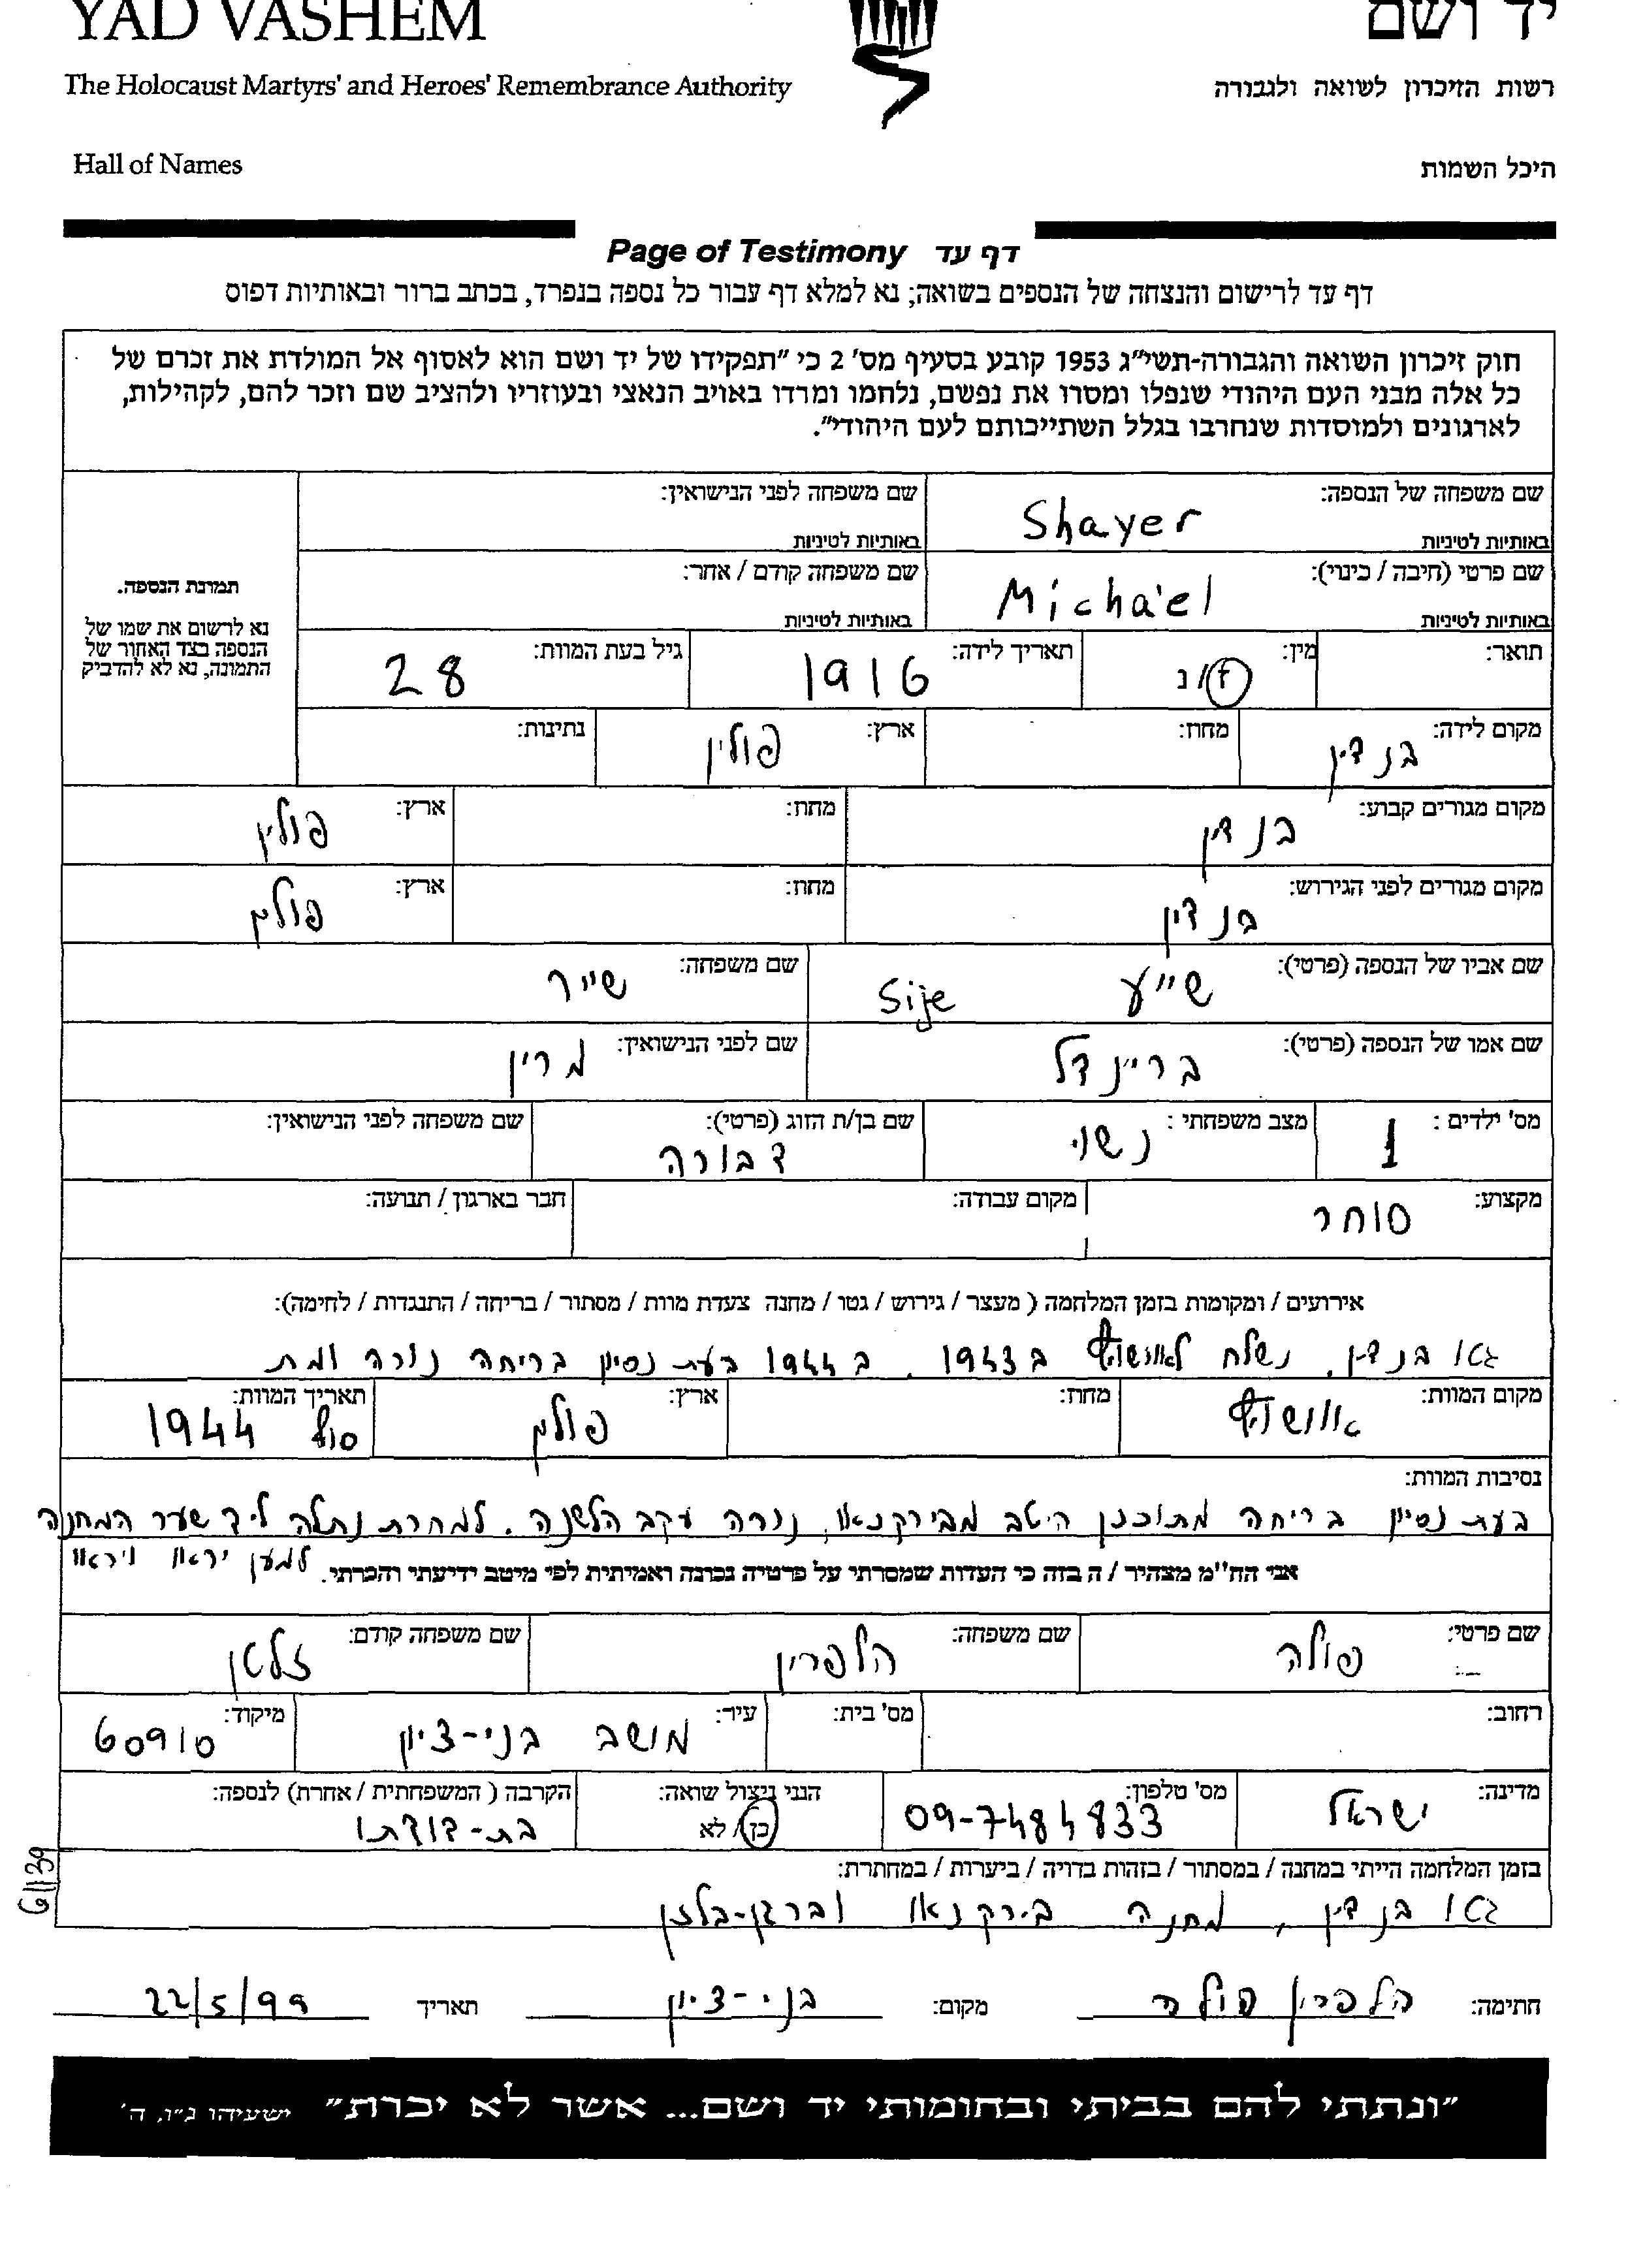 YAD VASHEM יד ושם
The Holocaust Martyrs' and Heroes' Remembrance Authority רשות הזיכרון לשואה ולגבורה
Hall of Names היכל השמות
Page of Testimony דף עד
דף עד לרישום והנצחה של הנספים בשואה; נא למלא דף עבור כל נספה בנפרד, בכתב ברור ובאותיות דפוס
חוק זיכרון השואה והגבורה-תשי"ג 1953 קובע בסעיף מס' 2 כי "תפקידו של יד ושם הוא לאסוף אל המולדת את זכרם של
כל אלה מבני העם היהודי שנפלו ומסרו את נפשם, נלחמו ומרדו באויב הנאצי ובעוזריו ולהציב שם וזכר להם, לקהילות,
לארגונים ולמוסדות שנחרבו בגלל השתייכותם לעם היהודי".
שם משפחה של הנספה: Shayer שם משפחה לפני הנישואין:
באותיות לטיניות באותיות לטיניות
שם פרטי (חיבה / כינוי): Micha'el שם משפחה קודם / אחר:
באותיות לטיניות באותיות לטיניות
תמונת הנספה.
נא לרשום את שמו של
הנספה בצד האחור של
התמונה, נא לא להדביק
תואר: מין: ז/נ תאריך לידה: 1916 גיל בעת המוות: 28
מקום לידה: בנדין מחוז: ארץ: פולין נתינות:
מקום מגורים קבוע: בנדין מחוז: ארץ: פולין
מקום מגורים לפני הגירוש: בנדין מחוז: ארץ: פולין
שם אביו של הנספה (פרטי): שייע Sije שם משפחה: שייר
שם אמו של הנספה (פרטי): בריינדל שם לפני הנישואין: מרין
מס' ילדים : 1 מצב משפחתי : נשוי שם בן/ת הזוג (פרטי): דבורה שם משפחה לפני הנישואין:
מקצוע: סוחר מקום עבודה: חבר בארגון / תנועה:
אירועים / ומקומות בזמן המלחמה ( מעצר / גירוש / גטו / מחנה צעדת מוות / מסתור / בריחה / התנגדות / לחימה):
גטו בנדין. נשלח לאושוויץ ב 1943. ב 1944 בעת נסיון בריחה נורה ומת
מקום המוות: אושוויץ מחוז: ארץ: פולין תאריך המוות: סוף 1944
נסיבות המוות:
בעת נסיון בריחה מתוכנן היטב מבירקנאו, נורה עקב הלשנה. למחרת נתלה ליד שער המחנה
למען יראו ויראו
אני הח"מ מצהיר / ה בזה כי העדות שמסרתי על פרטיה נכונה ואמיתית לפי מיטב ידיעתי והכרתי.
שם פרטי: פולה שם משפחה: הלפרין שם משפחה קודם: זלטן
רחוב: מס' בית: עיר: מושב בני-ציון מיקוד: 60910
מדינה: ישראל מס' טלפון: 09-7484833 הנני ניצול שואה: כן / לא הקרבה ( המשפחתית / אחרת) לנספה: בת-דודתו
בזמן המלחמה הייתי במחנה / במסתור / בזהות בדויה / ביערות / במחתרת:
גטו בנדין, מחנה בירקנאו וברגן-בלזן
חתימה: הלפרין פולה מקום: בני-ציון תאריך 22/5/99
"ונתתי להם בביתי ובחומותי יד ושם... אשר לא יכרת" ישעיהו נ"ו, ה'